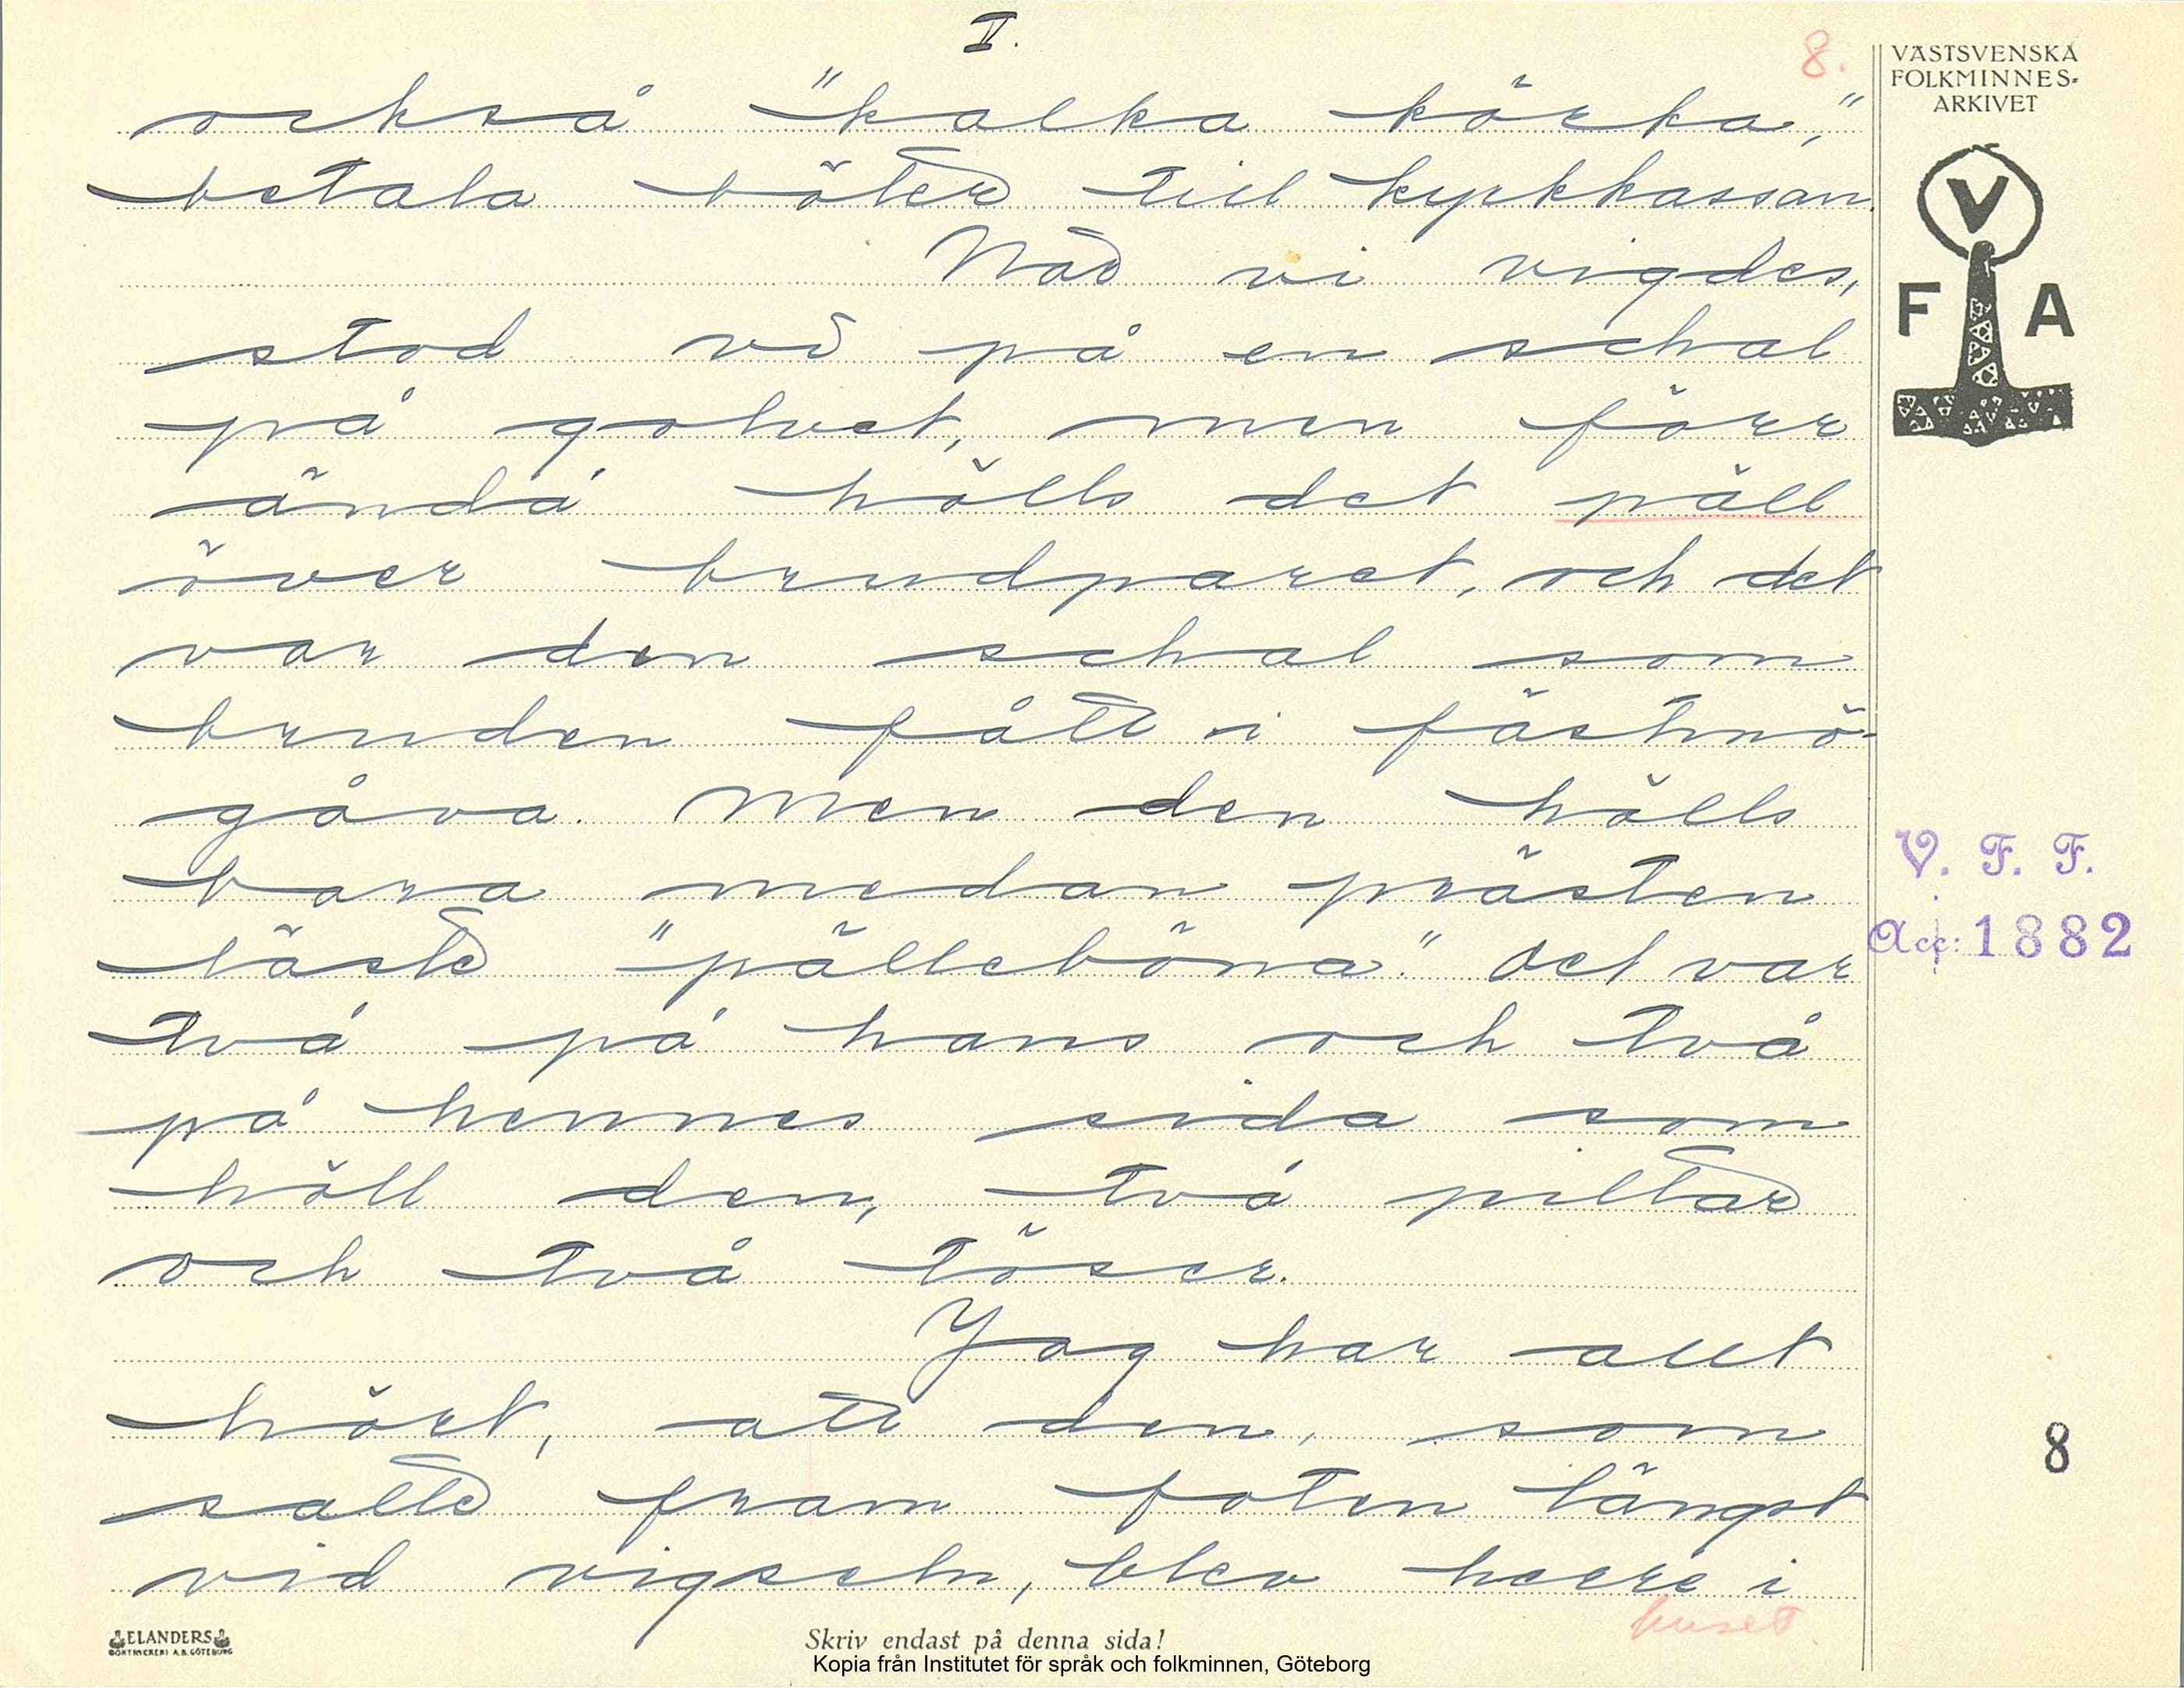 V.
8.
också "kalka körka,"
betala böter till kyrkkassan.
När vi vigdes,
stod vi på en schal
på golvet, men förr
ändå hölls det päll
över brudparet, och det
var den schal som
bruden fått i fästmö-
gåva. Men den hölls
bara medan prästen
läste "pälleböna." Det var
två på hans och två
på hennes sida som
höll den, två piltar
och två töser.
Jag har allt
hört, att den, som
satte fram foten längst
vid vigseln, blev herre i
huset.
VÄSTSVENSKA
FOLKMINNES-
ARKIVET
V
F A
V. F. F.
Acc: 1882
8
ELANDERS
BOKTRYCKERI A.B. GÖTEBORG
Skriv endast på denna sida!
Kopia från Institutet för språk och folkminnen, Göteborg